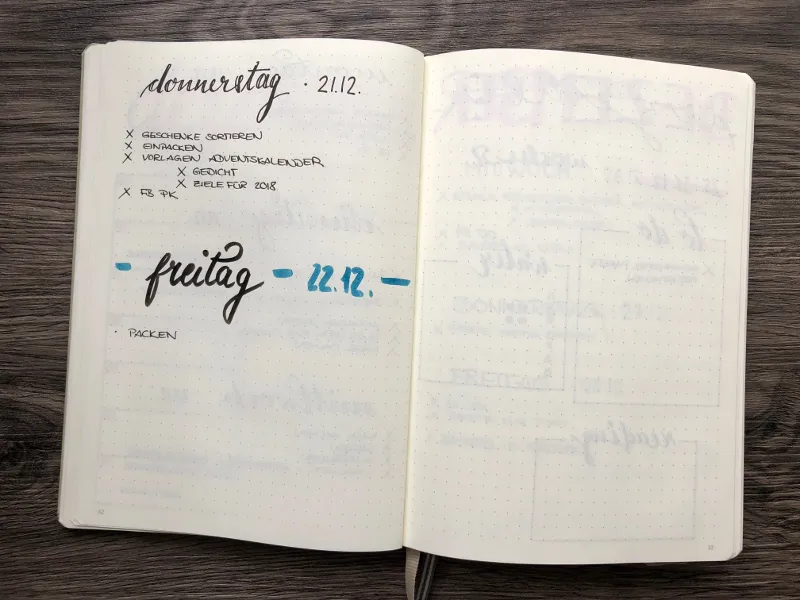 donnerstag · 21.12.
X GESCHENKE SORTIEREN
X EINPACKEN
X VORLAGEN ADVENTSKALENDER
X GEDICHT
X ZIELE FÜR 2018
X FB PK
- freitag - 22.12. -
· PACKEN